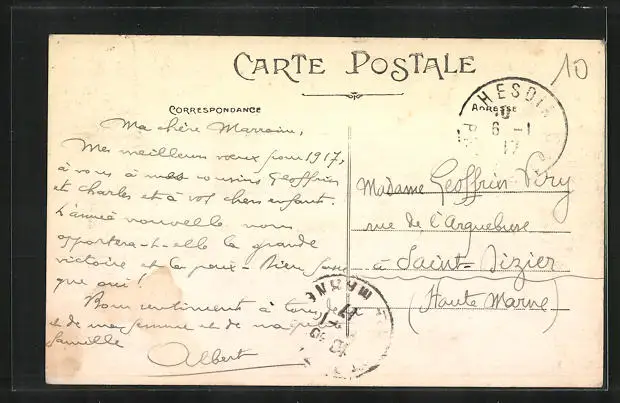 CARTE POSTALE
CORRESPONDANCE
ADRESSE
10
HESDIN
10
6 - 1
17
Ma chère Marraine,
Mes meilleurs vœux pour 1917,
à vous à mes cousins Geoffrin
et Charles et à vos chers enfant.
L'année nouvelle nous
apportera-t-elle la grande
victoire et la paix -
que oui!
Bons sentiments à tous, de
et de ma femme et de ma
famille
Albert
Madame Geoffrin Viry
rue de l'Arquebuse
à Saint-Dizier
(Haute Marne)
MARNE